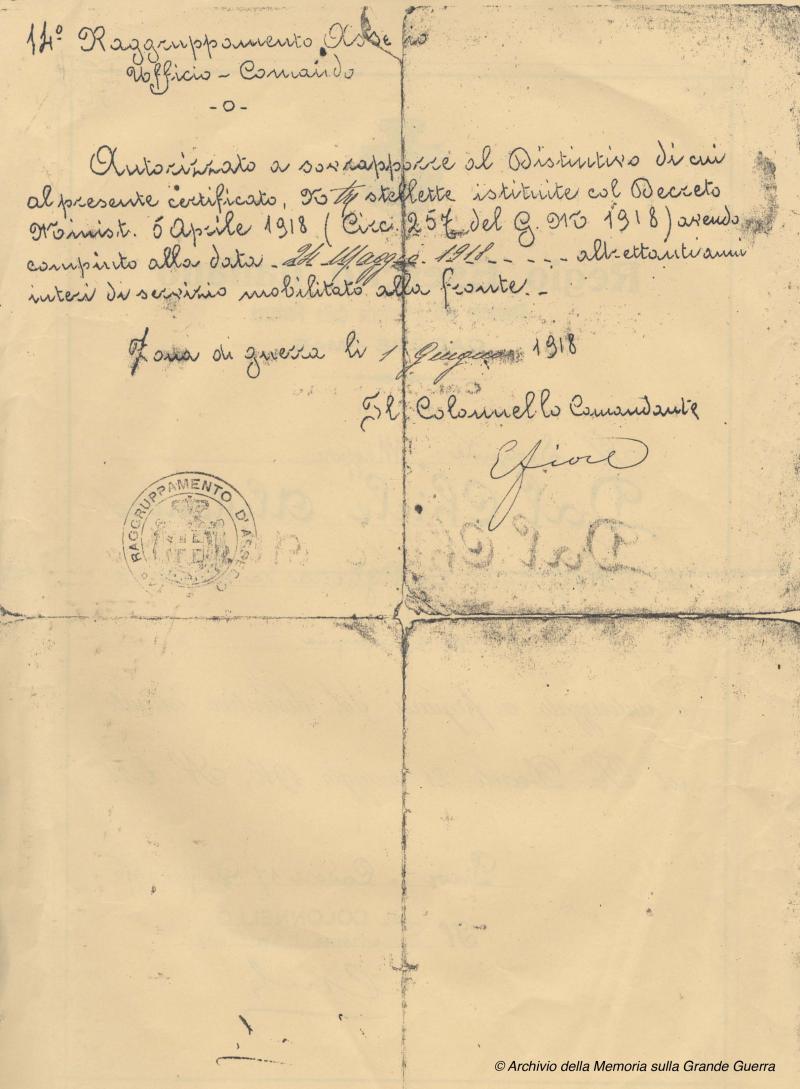 14º Raggruppamento Assedio
Ufficio - Comando
-o-
Autorizzato a sovrapporre al Distintivo di cui
al presente certificato, N stellette istituite col Decreto
Minist. 5 Aprile 1918 (Circ. 257 del G. M 1918) avendo
compiuto alla data - 24 Maggio 1918 - - - - altrettanti anni
interi di servizio mobilitato alla fronte. -
Zona di guerra li 1 Giugno 1918
Il Colonnello Comandante
E fiore
RAGGRUPPAMENTO D'ASSEDIO
© Archivio della Memoria sulla Grande Guerra